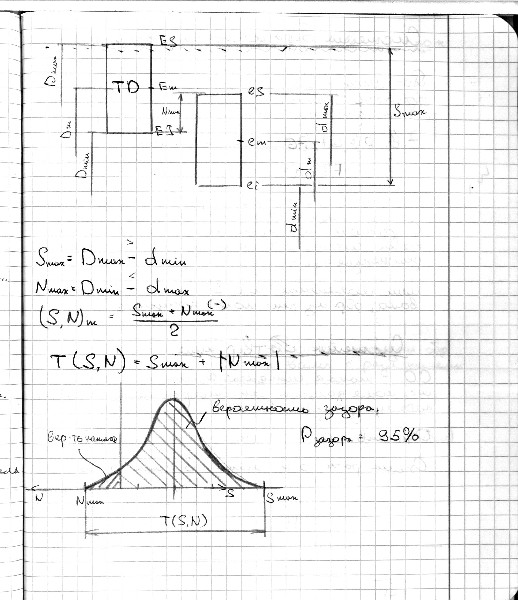 ES
Dmax
TD
Em
Nmax
es
Smax
dmax
Dm
EI
em
Dmin
dm
ei
dmin
Smax = Dmax - dmin
Nmax = Dmin - dmax
(S,N)m = Smax + Nmax(-) / 2
T(S,N) = Smax + |Nmax|
вероятность зазора,
Pзазора = 95%
вер-ть натяга
N
Nmax
S
Smax
T(S,N)